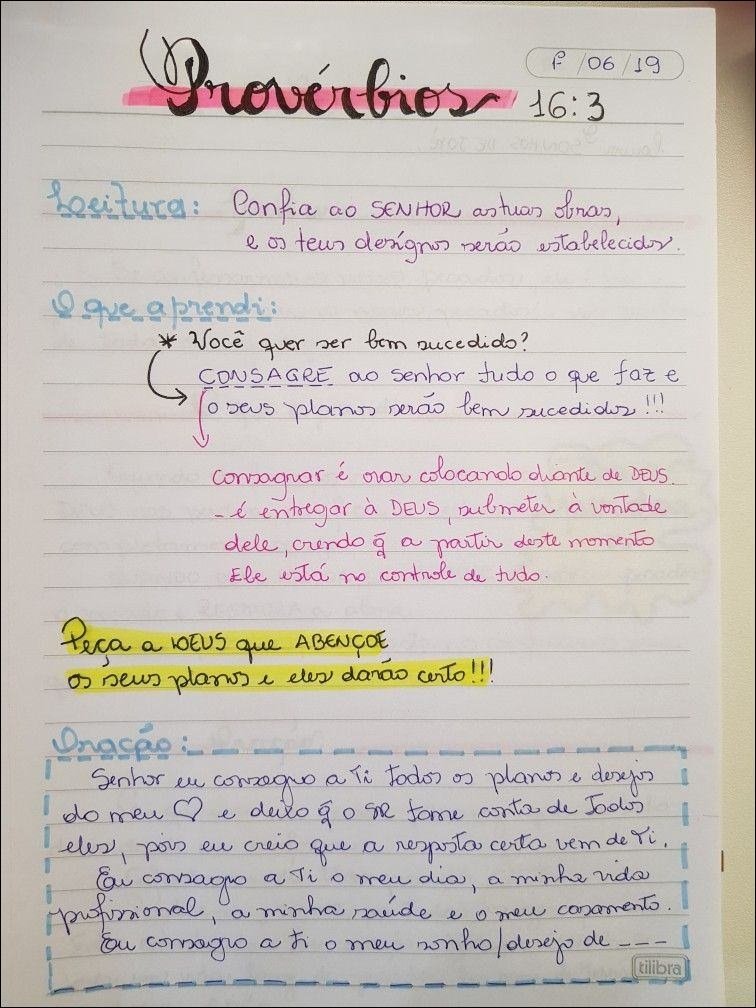 Provérbios 16:3
7/06/19
Leitura: Confia ao SENHOR as tuas obras,
e os teus desígnos serão estabelecidos.
O que aprendi:
* Você quer ser bem sucedido?
CONSAGRE ao senhor tudo o que faz e
o seus planos serão bem sucedidos!!!
Consagrar é orar colocando diante de DEUS.
- é entregar à DEUS, submeter à vontade
dele, crendo q̃ a partir deste momento
Ele está no controle de tudo.
Peça a DEUS que ABENÇOE
os seus planos e eles darão certo!!!
Oração:
Senhor eu consagro a Ti todos os planos e desejos
do meu ♡ e deixo q̃ o SR tome conta de Todos
eles, pois eu creio que a resposta certa vem de Ti.
Eu consagro a Ti o meu dia, a minha vida
profissional, a minha saúde e o meu casamento.
Eu consagro a ti o meu sonho/desejo de ---
tilibra